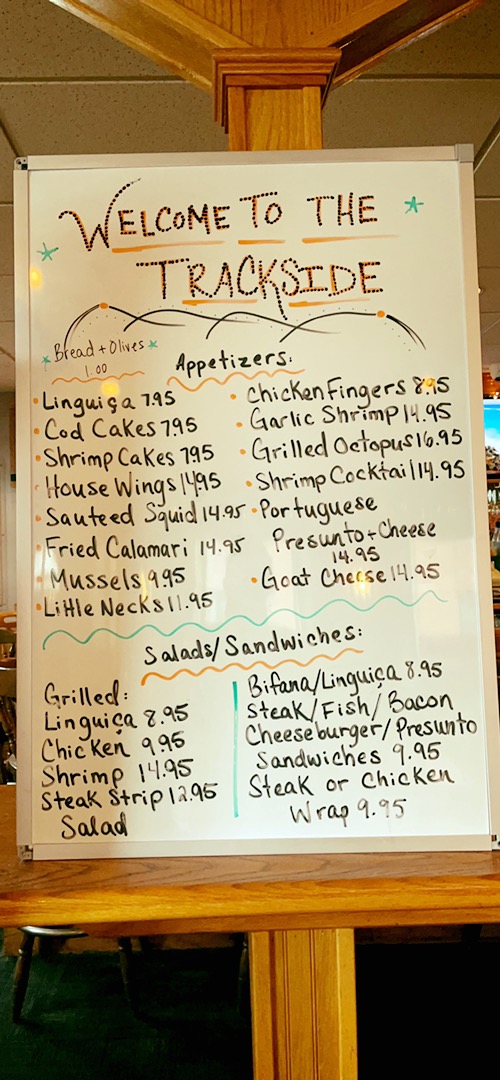 WELCOME TO THE
TRACKSIDE
Bread + Olives
1.00
Appetizers:
Linguiça 7.95
Cod Cakes 7.95
Shrimp Cakes 7.95
House Wings 14.95
Sauteed Squid 14.95
Fried Calamari 14.95
Mussels 9.95
Little Necks 11.95
Chicken Fingers 8.95
Garlic Shrimp 14.95
Grilled Octopus 16.95
Shrimp Cocktail 14.95
Portuguese
Presunto + Cheese
14.95
Goat Cheese 14.95
Salads/Sandwiches:
Grilled:
Linguiça 8.95
Chicken 9.95
Shrimp 14.95
Steak Strip 12.95
Salad
Bifana/Linguiça 8.95
Steak/Fish/Bacon
Cheeseburger/Presunto
Sandwiches 9.95
Steak or Chicken
Wrap 9.95